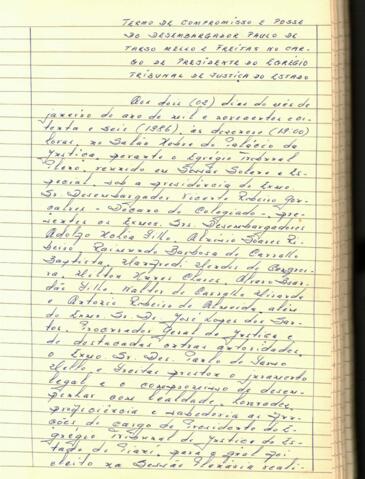 TERMO DE COMPROMISSO E POSSE
DO DESEMBARGADOR PAULO DE
TARSO MELLO E FREITAS NO CAR-
GO DE PRESIDENTE DO EGRÉGIO
TRIBUNAL DE JUSTIÇA DO ESTADO
Aos dois (02) dias do mês de
janeiro do ano de mil e novecentos e oi-
tenta e seis (1986), às dezenove (19:00)
horas, no Salão Nobre do Palácio da
Justiça, perante o Egrégio Tribunal
Pleno, reunido em Sessão Solene e Es-
pecial, sob a presidência do Exmo.
Sr. Desembargador Vicente Ribeiro Gon-
çalves - Decano do Colegiado - pre-
sentes os Exmos. Srs. Desembargadores
Aluísio Soares Ri-
beiro, Raimundo Barbosa de Carvalho
Baptista, Manfredi Mendes de Cerquei-
ra, Álvaro Bran-
dão Filho, Walter de Carvalho Miranda
e Antonio Ribeiro de Almeida, além
do Exmo. Sr. Dr. José Lopes dos San-
tos, Procurador Geral de Justiça e
de destacadas outras autoridades,
o Exmo. Sr. Des. Paulo de Tarso
Mello e Freitas prestou o juramento
legal e o compromisso de desem-
penhar com lealdade, honradez,
proficiência e sabedoria as fun-
ções do cargo de Presidente do E-
grégio Tribunal de Justiça do Es-
tado do Piauí, para o qual foi
eleito na Sessão Plenária reali-